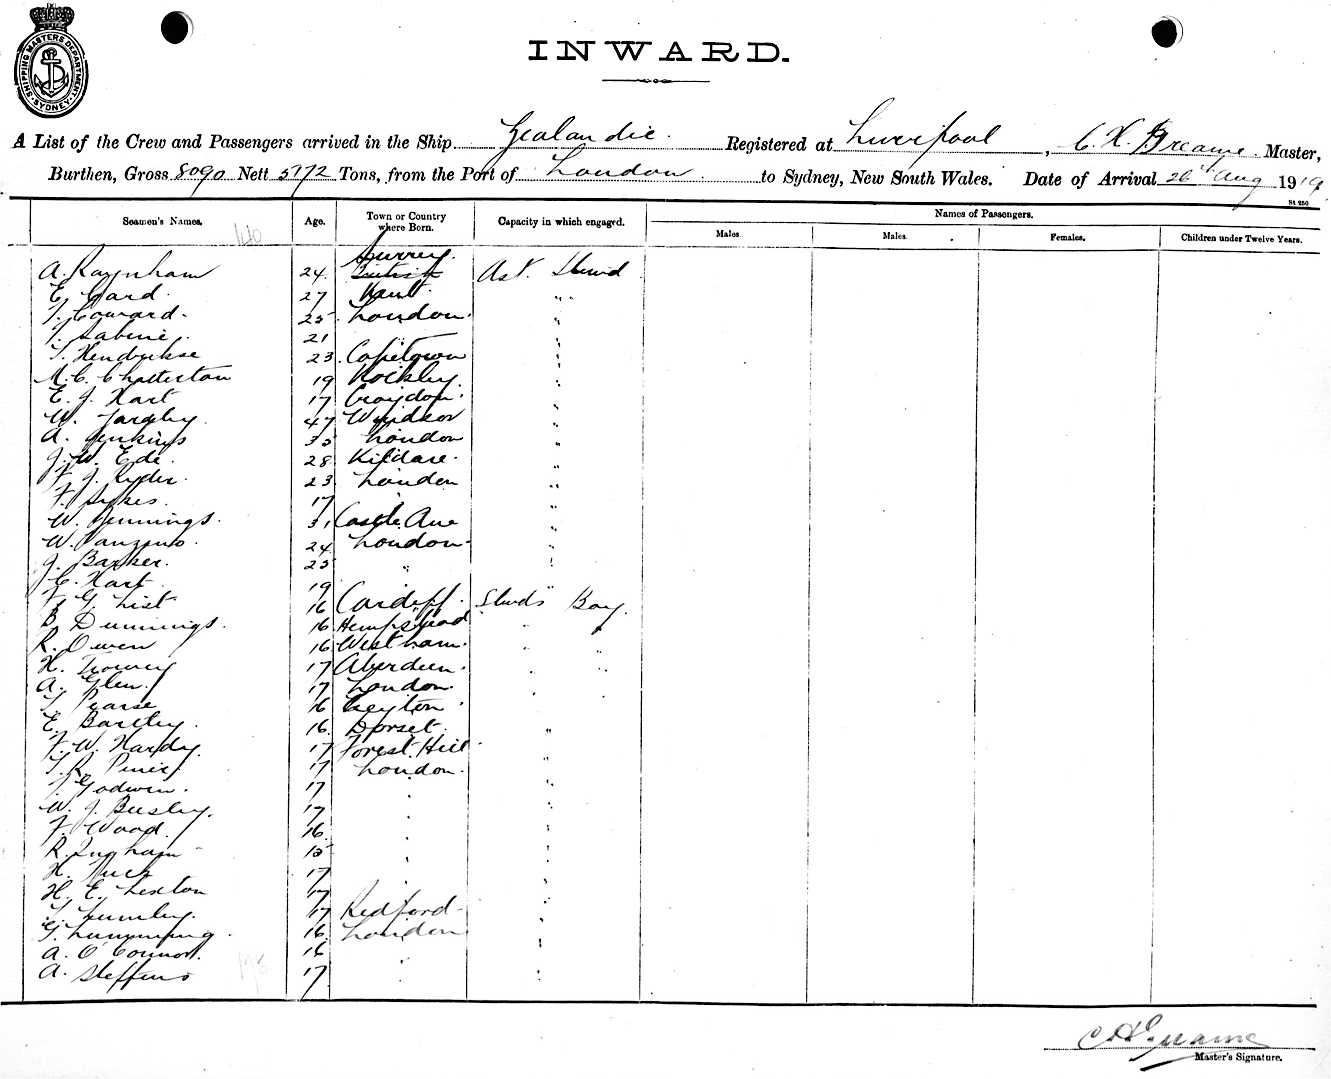 SHIPPING MASTERS DEPARTMENT SYDNEY
INWARD.
A List of the Crew and Passengers arrived in the Ship Zealandic. Registered at Liverpool, C. H. Master,
Burthen, Gross 8090 Nett 5172 Tons, from the Port of London to Sydney, New South Wales. Date of Arrival 26th Aug 1919
St 250
Seamen's Names. Age. Town or Country where Born. Capacity in which engaged. Names of Passengers.
Males. Males. Females. Children under Twelve Years.
Surrey.
A. Raynham 24. British Ast. Stewd
E. Card. 27 Kent. "
T. Coward. 25 London. "
T. Sabine. 21 " "
T. Hendrikse 23. Capetown "
M. C. Chatterton 19 Hockley. "
E. J. Hart 17 Croydon. "
W. Yardley. 47 Windsor "
A. Jenkins 35 London "
J. W. Ede. 28 Kildare. "
F. J. Ryder. 23 London "
F. Sykes. 17 " "
W. Jennings. 31 Castle Ave "
W. 24 London "
J. Barker. 25 " "
C. Hart 19 "
F. G. List 16 Cardiff. Stwds Boy.
B. Dunnings. 16 Hempstead " "
R. Owen 16 West Ham. " "
H. 17 Aberdeen. " "
A. Glen. 17 London. "
T. Pearse 16 Leyton "
E. Bartley. 16. Dorset. "
F. W. Hardy. 17 Forest Hill "
T. R. 17 London. "
T. Godwin. 17 " "
W. J. Beesley. 17 " "
F. Wood. 16. " "
R. Ingham 15 " "
H. Tuck 17 "
H. E. Lexton 17 "
T. Lumley. 17 Redford "
G. 16. London "
A. O'Connor. 16 " "
A. Steffens 17 " "
Master's Signature.